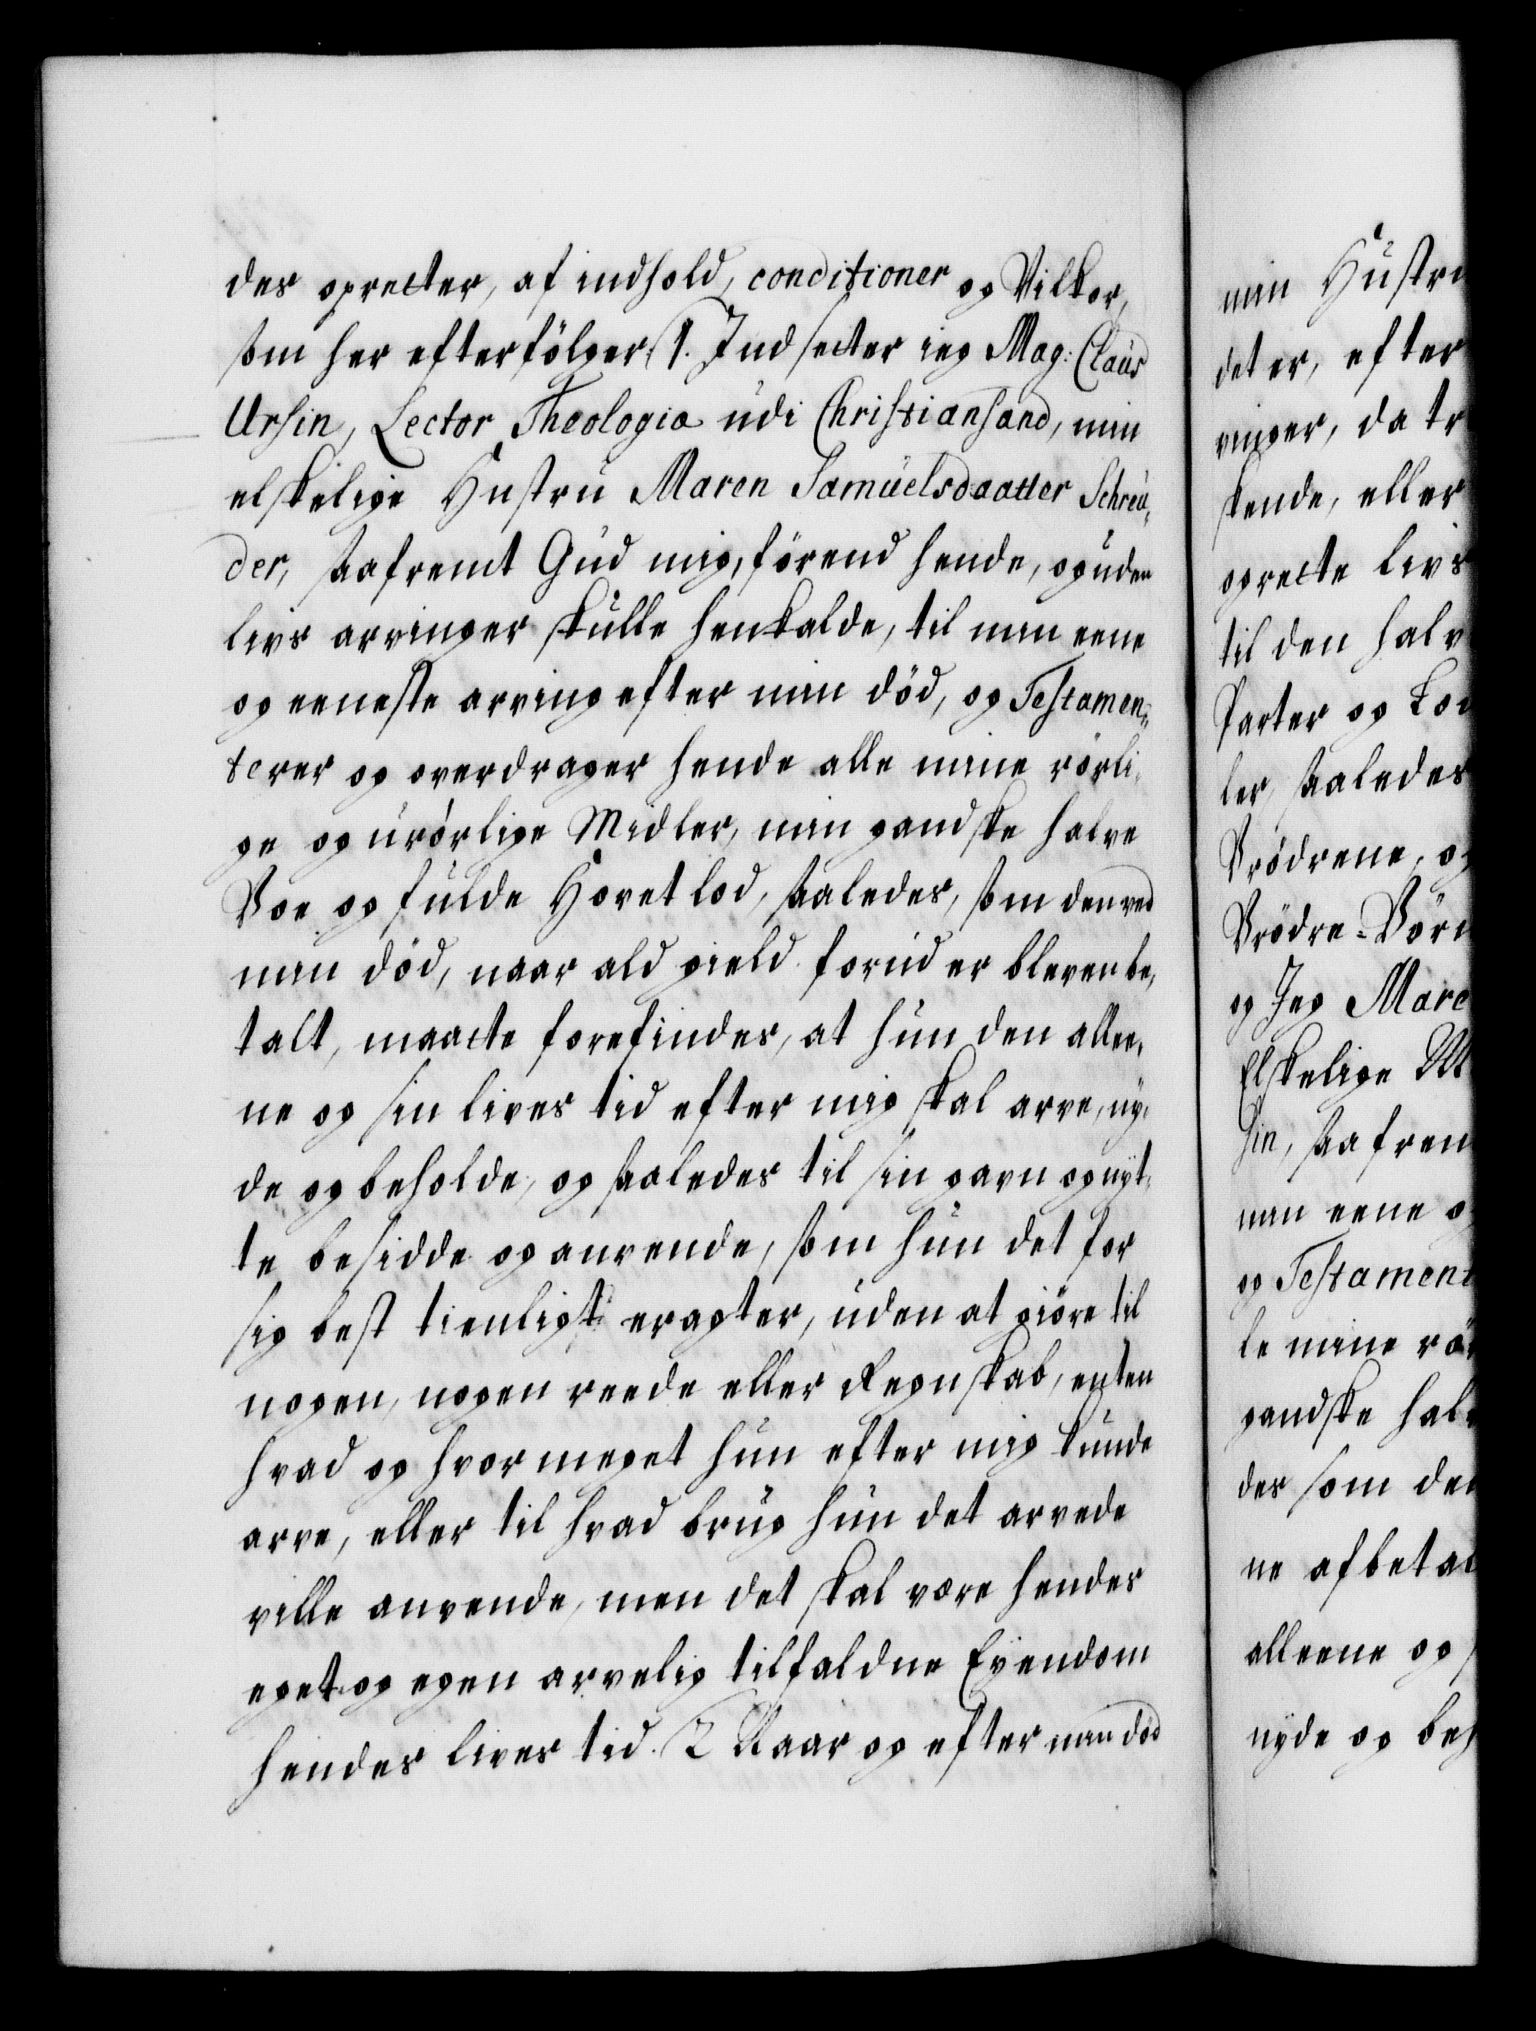 des opretter, af indhold, conditioner og Vilkor,
som her efterfölger. 1. Indsetter ieg Mag: Claus
Ursin, Lector Theologiæ udi Christiansand, min
elskelige Hustru Maren Samuelsdaatter Schreu-
der, saafremt Gud mig, förend hende, og uden
livs arvinger skulle henkalde, til min eene
og eeneste arving efter min död, og Testamen-
terer og overdrager hende alle mine rörli-
ge og urörlige Midler, min gandske halve
Boe og fulde Hovetlod, saaledes, som den ved
min död, naar ald gield forud er bleven be-
talt, maatte forefindes, at hun den allee-
ne og sin lives tid efter mig skal arve, ny-
de og beholde, og saaledes til sin gavn og nyt-
te besidde og anvende, som hun det for
sig best tienligt eragter, uden at giöre til
nogen, nogen reede eller Regnskab, enten
hvad og hvor meget hun efter mig kunde
arve, eller til hvad brug hun det arvede
ville anvende, men det skal være hendes
eget og egen arvelig tilfaldne Eyendom
hendes lives tid. 2 Naar og efter min död
min Hustru
det er, efter
vinger, da tr
kende, eller
oprette livs
til den halv
Parter og Lod
ler, saaledes
Brödrene, og
Brödre-Börn
og Jeg Mare
Elskelige M
sin, saafrem
min eene og
og Testament
le mine rör
gandske halv
des som den
ne afbetal
alleene og s
nyde og beh